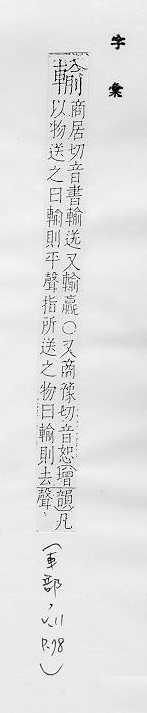 字彙
輸
商居切音書輸送又輸贏○又商豫切音恕增韻凡
以物送之曰輸則平聲指所送之物曰輸則去聲、
(車部,v.11
p.98)